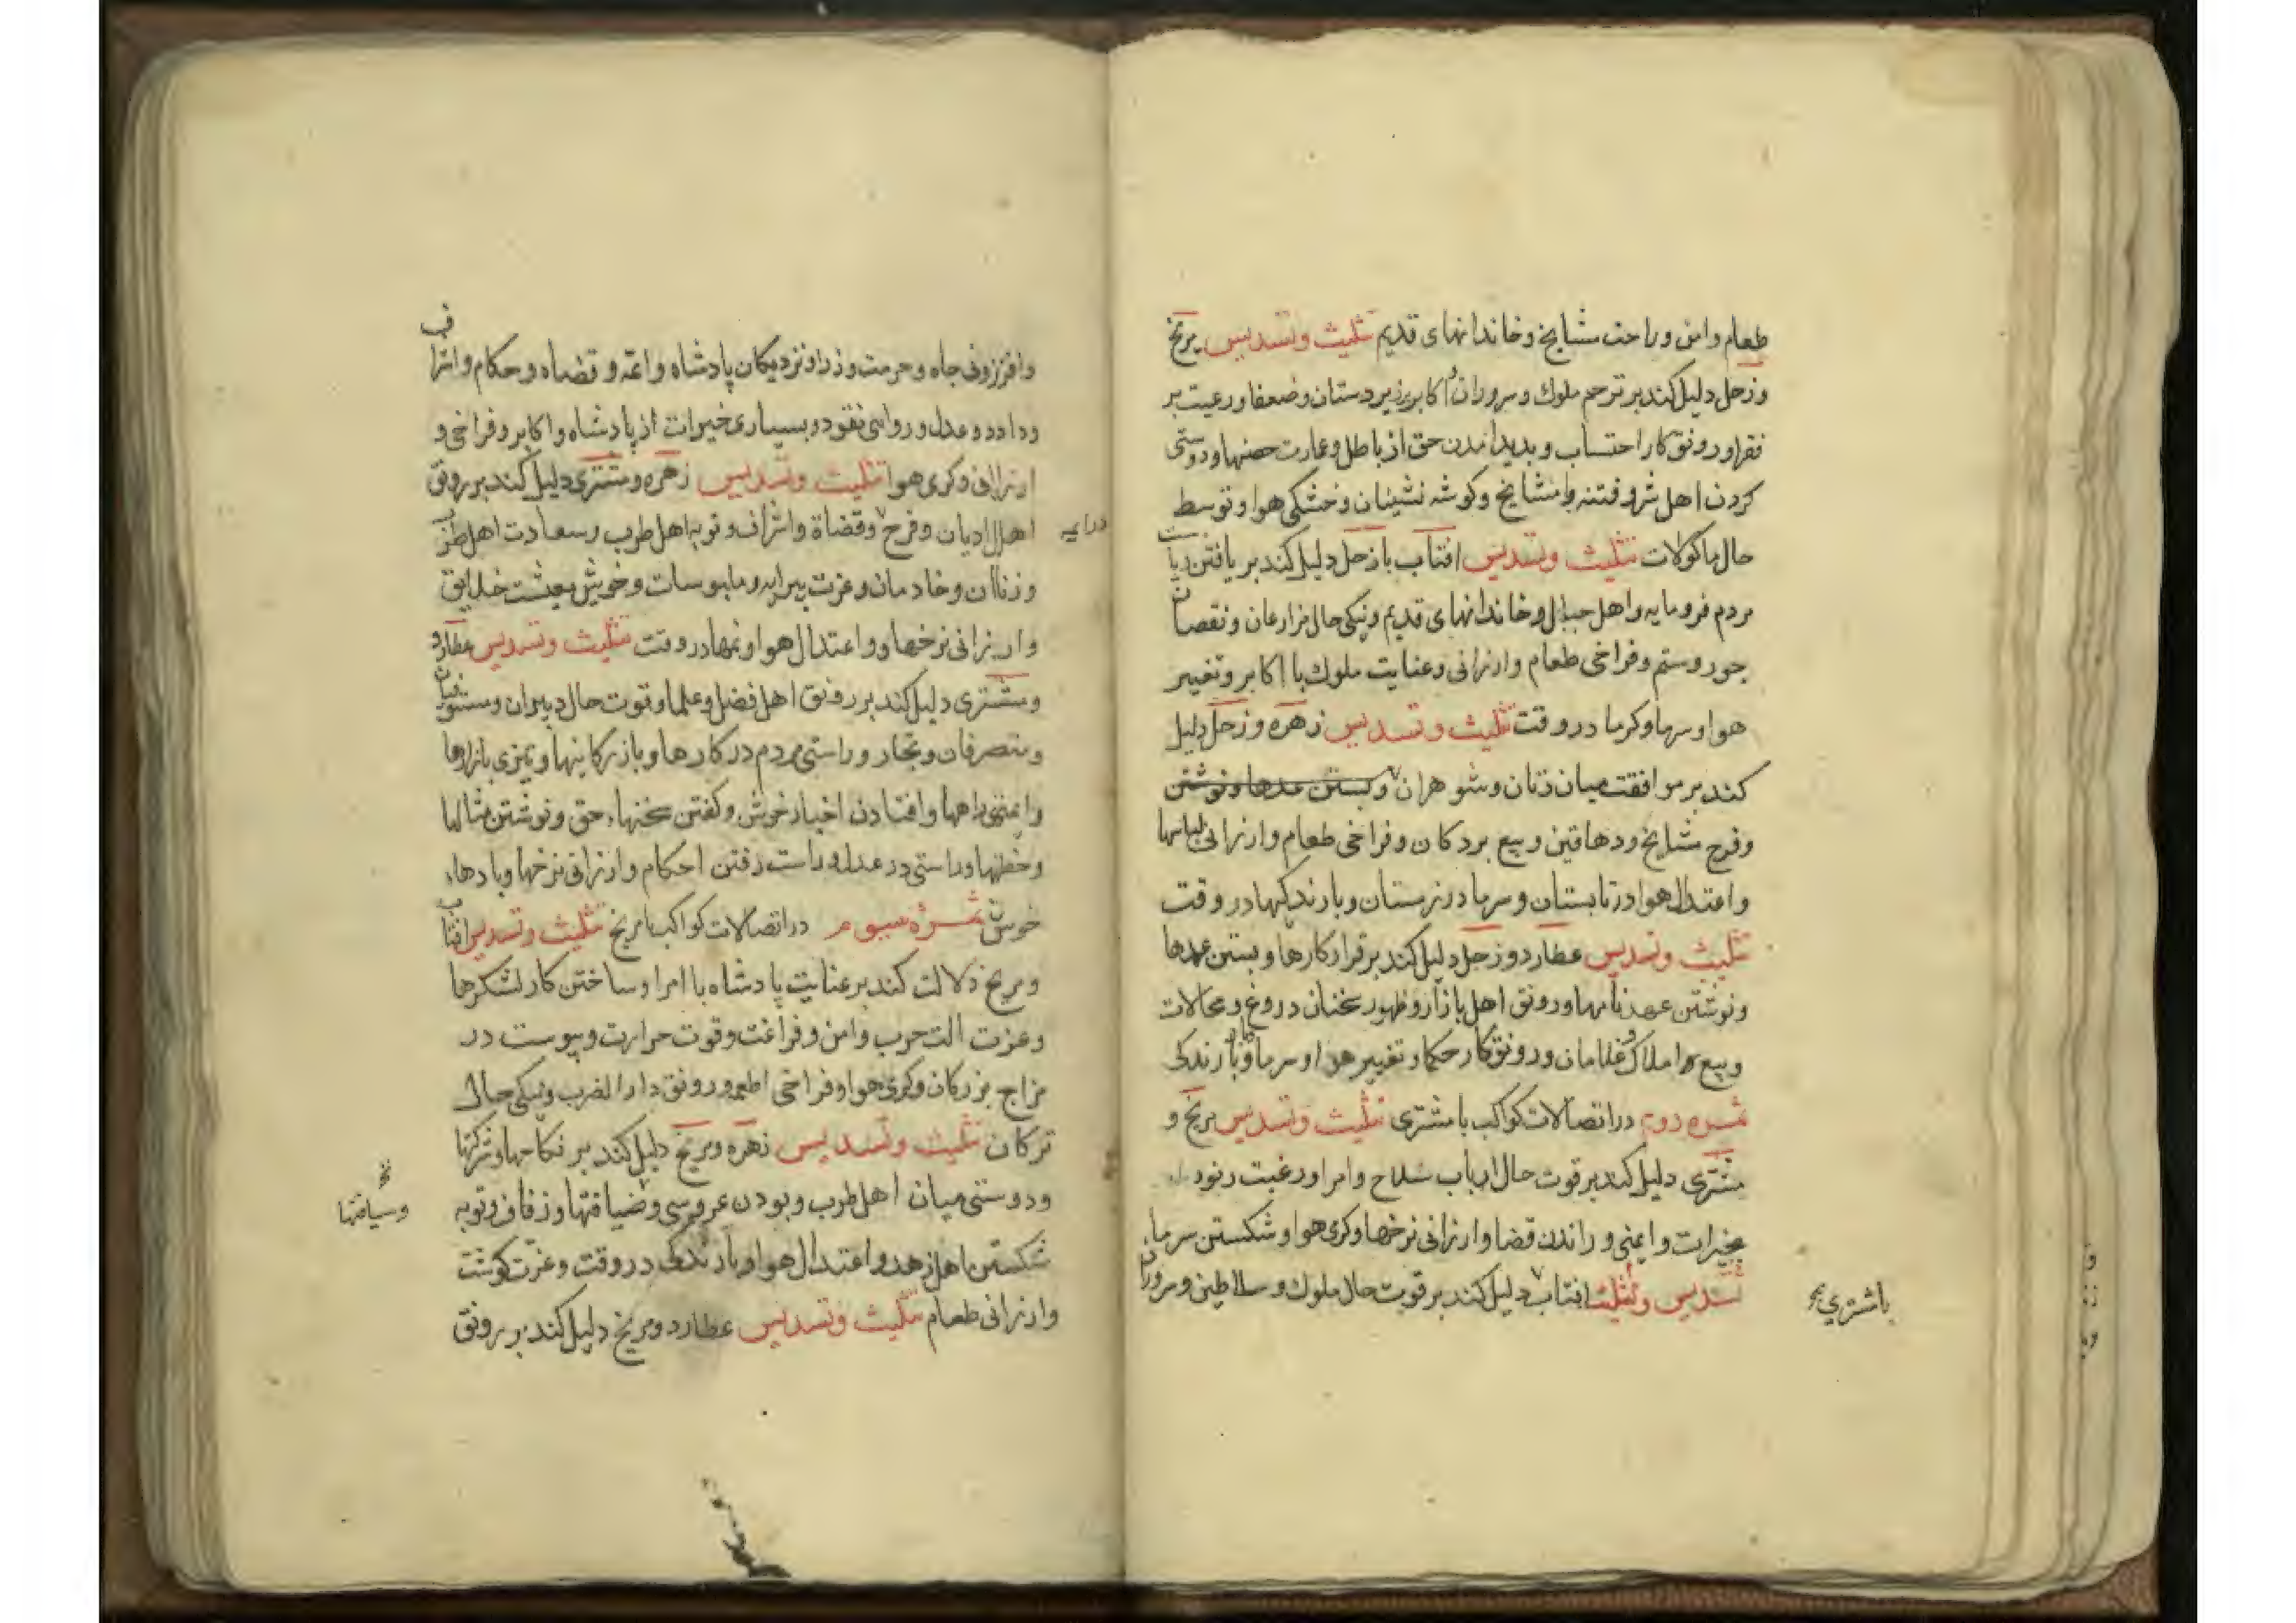 طعام وامن وراحت مشایخ وخاندانهای قدیم تثلیث وتسدیس مریخ
وزحل دلیل کند بر ترحم ملوک وسروران و اکابر بر زیردستان وضعفا ورعیت بر
فقرا ورونق کار احتساب و بدید امدن حق از باطل وعمارت حصنها ودوستی
کردن اهل شر وفتنه با مشایخ وکوشه نشینان وخشکی هوا وتوسط
حال ماکولات تثلیث وتسدیس افتاب با زحل دلیل کند بر یافتن
مردم فرومایه واهل جبال وخاندانهای قدیم ونیکی حال مزارعان ونقصان
جور وستم وفراخی طعام وارزانی وعنایت ملوک با اکابر وتغییر
هوا وسرما وکرما در وقت تثلیث وتسدیس زهره وزحل دلیل
کند بر موافقت میان زنان وشوهران وبستن عهدها ونوشتن
وفرح مشایخ ودهاقین وبیع بردکان وفراخی طعام وارزانی لباسها
واعتدال هوا در تابستان وسرما در زمستان وبارندکیها در وقت
تثلیث وتسدیس عطارد وزحل دلیل کند بر قرار کارها وبستن عهدها
ونوشتن عهدنامها ورونق اهل بازار وظهور سخنان دروغ ومحالات
وبیع املاک و غلامان ورونق کار حکما وتغییر هوا وسرما وبارندکی
ثمره دوم در اتصالات کواکب با مشتری تثلیث وتسدیس مریخ و
مشتری دلیل کند بر قوت حال ارباب سلاح وامرا ورغبت
بخیرات وایمنی وراندن قضا وارزانی نرخها وکرمی هوا وشکستن سرما
تسدیس وتثلیث افتاب دلیل کند بر قوت حال ملوک وسلاطین وسروران
با مشتری
وافزونی جاه وحرمت وزرا ونزدیکان پادشاه وائمه وقضاه وحکام واشراف
وداد وعدل وروایی نقود وبسیاری خیرات از پادشاه واکابر وفراخی و
ارزانی وکرمی هوا تثلیث وتسدیس زهره ومشتری دلیل کند بر رونق
اهل ادیان وفرح وقضاة واشراف وتوبه اهل طرب وسعادت اهل طرب
وزنان وخادمان وعزت پیرایه وملبوسات وخوشی معیشت خلایق
وارزانی نرخها واعتدال هوا ونمها در وقت تثلیث وتسدیس عطارد
ومشتری دلیل کند بر رونق اهل فضل وعلما وقوت حال دبیران ومستوفیان
ومتصرفان وتجار وراستی مردم در کارها وبازرکانیها وتیزی بازارها
وایمنی راهها وافتادن اخبار خوش وکفتن سخنهاء حق ونوشتن مثالها
وخطها وراستی در عدل وراست رفتن احکام وارزانی نرخها وبادهاء
خوش ثمره سیوم در اتصالات کواکب با مریخ تثلیث وتسدیس افتاب
ومریخ دلالت کند بر عنایت پادشاه با امرا وساختن کار لشکرها
وعزت الت حرب وامن وفراغت وقوت حرارت ویبوست در
مزاج بزرکان وکرمی هوا وفراخی اطعمه ورونق دار الضرب ونیکی حال
ترکان تثلیث وتسدیس زهره ومریخ دلیل کند بر نکاحها وشرکتها
ودوستی میان اهل طرب وبودن عروسی وضیافتها وزفاف وتوبه
شکستن اهل زهد واعتدال هوا وبارندکی در وقت وعزت کوشت
وارزانی طعام تثلیث وتسدیس عطارد ومریخ دلیل کند بر رونق